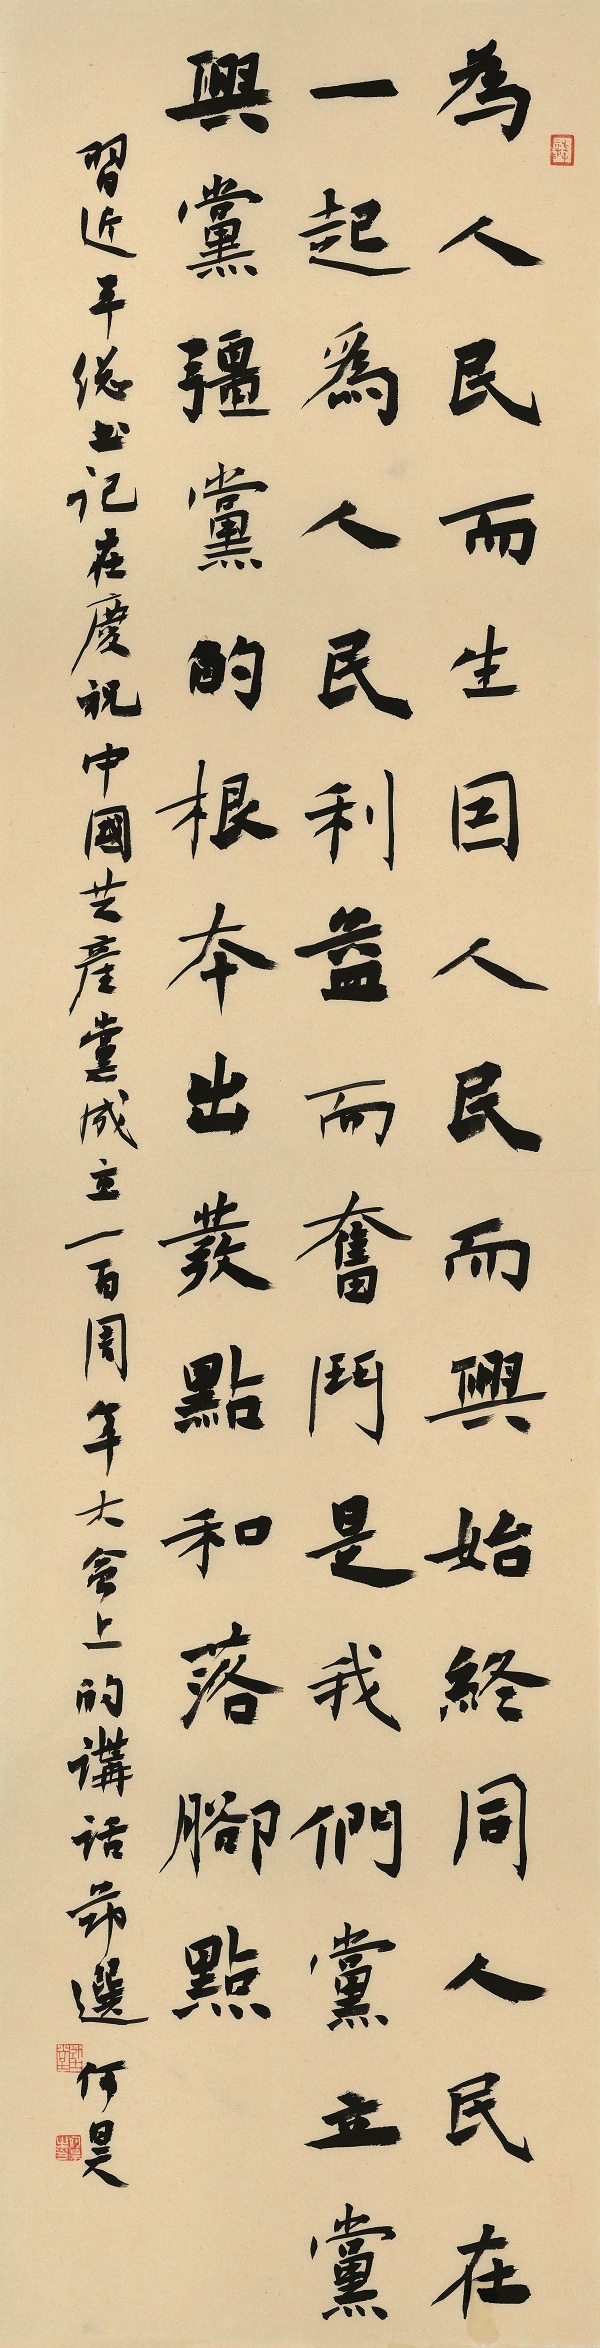 為人民而生因人民而興始終同人民在
一起爲人民利益而奮鬥是我們黨立黨
興黨彊黨的根本出發點和落腳點
習近平總书记在慶祝中國共產黨成立一百周年大會上的講话節選 何昊